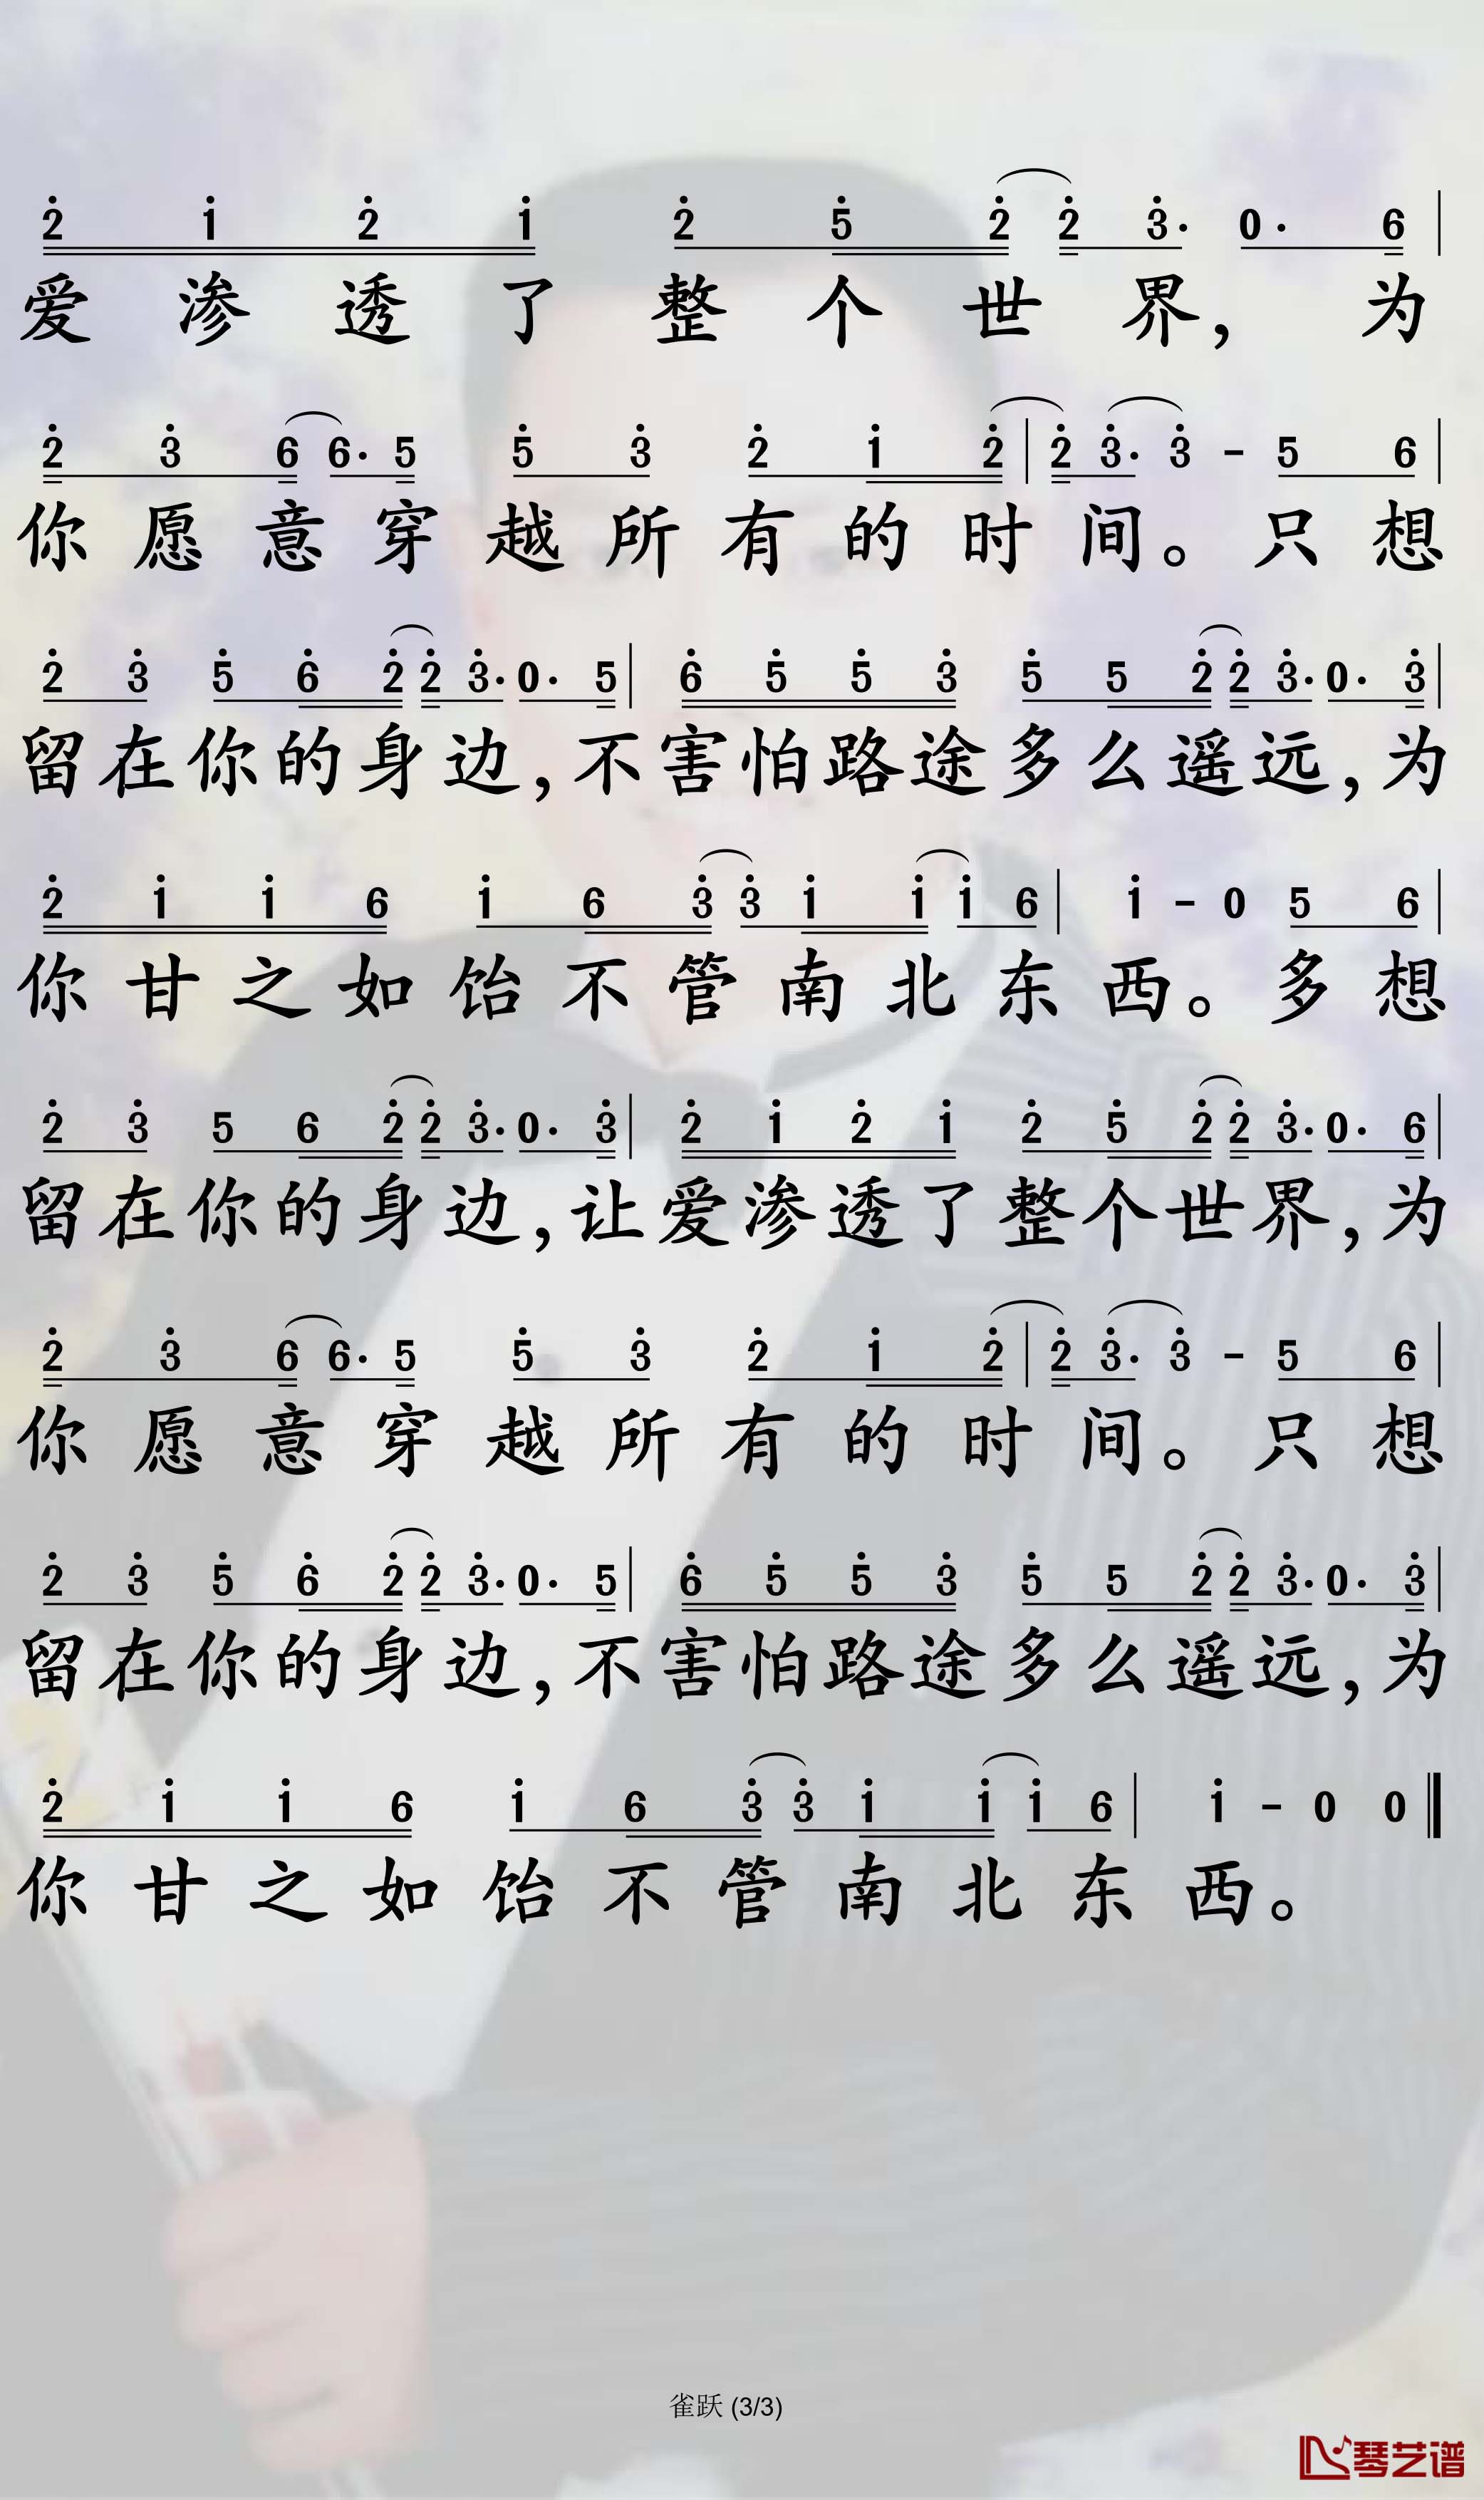 2̇ 1̇ 2̇ 1̇ 2̇ 5̇ 2̇ 2̇ 3̇· 0· 6 |
爱渗透了整个世界，为
2̇ 3̇ 6̇ 6· 5̇ 5̇ 3̇ 2̇ 1̇ 2̇ | 2̇ 3̇· 3̇ - 5 6 |
你愿意穿越所有的时间。只想
2̇ 3̇ 5̇ 6̇ 2̇ 2̇ 3̇· 0· 5 | 6̇ 5̇ 5̇ 3̇ 5̇ 5 2̇ 2̇ 3̇· 0· 3̇ |
留在你的身边，不害怕路途多么遥远，为
2̇ 1̇ 1̇ 6 1̇ 6 3̇ 3̇ 1̇ 1̇ 1̇ 6 | 1̇ - 0 5 6 |
你甘之如饴不管南北东西。多想
2̇ 3̇ 5 6 2̇ 2̇ 3̇· 0· 3̇ | 2̇ 1̇ 2̇ 1̇ 2̇ 5̇ 2̇ 2̇ 3̇· 0· 6 |
留在你的身边，让爱渗透了整个世界，为
2̇ 3̇ 6̇ 6· 5̇ 5̇ 3̇ 2̇ 1̇ 2̇ | 2̇ 3̇· 3̇ - 5 6 |
你愿意穿越所有的时间。只想
2̇ 3̇ 5̇ 6̇ 2̇ 2̇ 3̇· 0· 5 | 6̇ 5̇ 5̇ 3̇ 5̇ 5 2̇ 2̇ 3̇· 0· 3̇ |
留在你的身边，不害怕路途多么遥远，为
2̇ 1̇ 1̇ 6 1̇ 6 3̇ 3̇ 1̇ 1̇ 1̇ 6 | 1̇ - 0 0 ‖
你甘之如饴不管南北东西。
雀跃 (3/3)
琴艺谱